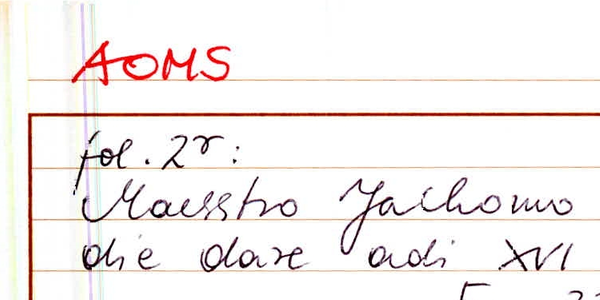 AOMS
fol. 2r:
Maesstro Jachomo
die dare adi XVI